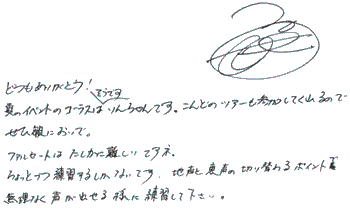 どうもありがとう!
そうです
夏のイベントのコーラスはりんちゃんです。こんどのツアーも参加してくれるので
ぜひ観においで。
ファルセットは たしかに難しいですネ.
ちょっとづつ練習するしかないです. 地声と裏声の切り替わるポイントを
無理なく声が出せる様に練習して下さい。